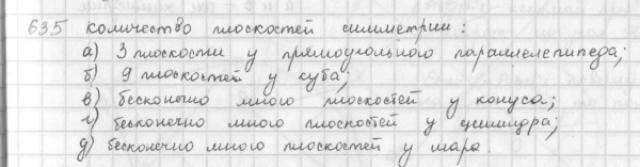 635 количество плоскостей симметрии:
а) 3 плоскости у прямоугольного параллелепипеда;
б) 9 плоскостей у куба;
в) бесконечно много плоскостей у конуса;
г) бесконечно много плоскостей у цилиндра;
д) бесконечно много плоскостей у шара.